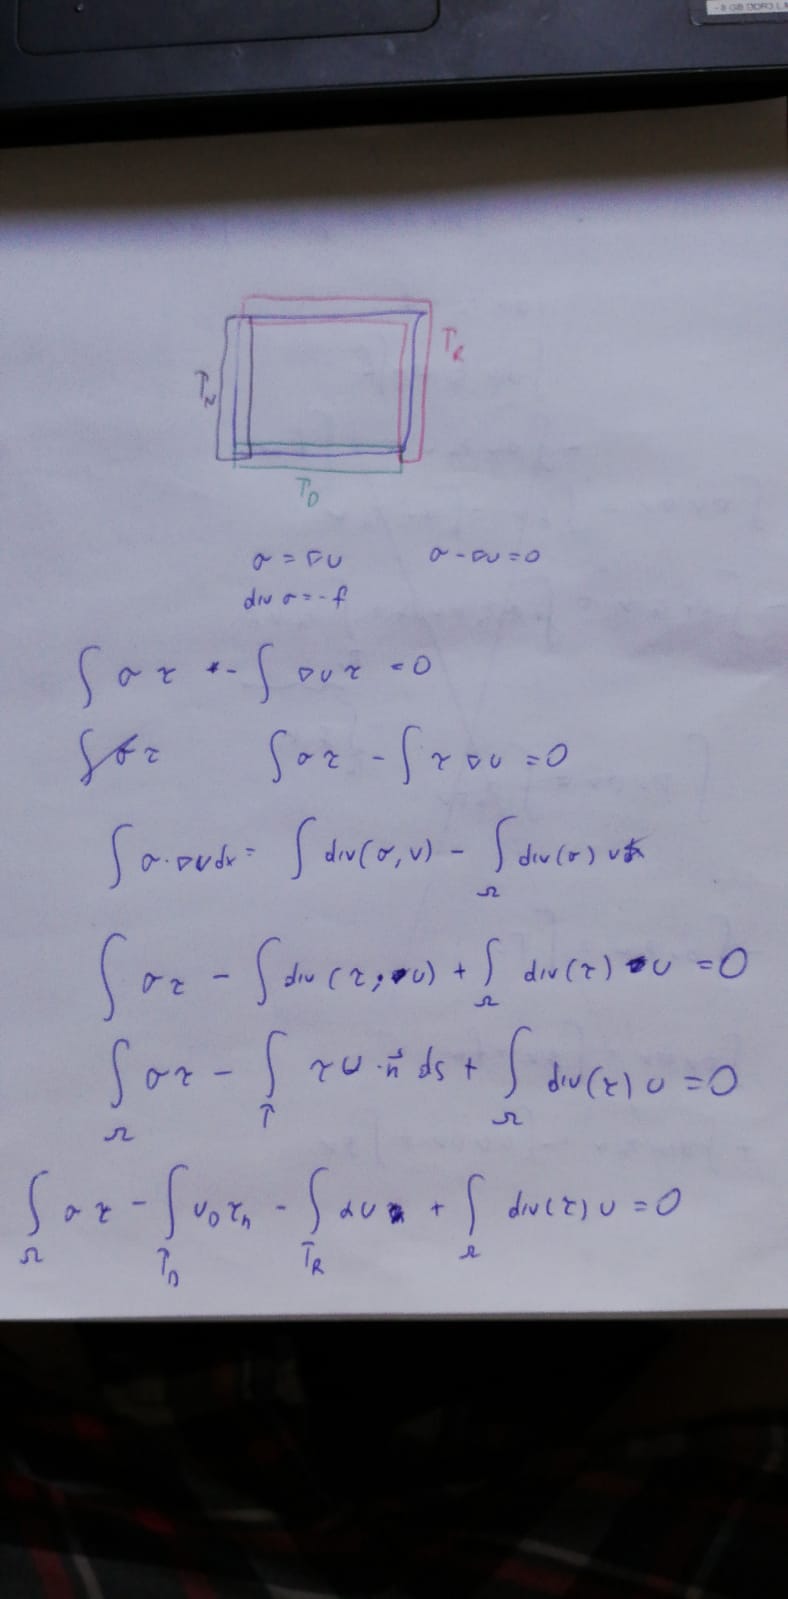 -8 GB DDR3 LA
Γ_R
Γ_N
Γ_D
σ = ∇u    σ - ∇u = 0
div σ = -f
∫ σ τ - ∫ ∇u τ = 0
∫ σ τ    ∫ σ τ - ∫ τ ∇u = 0
∫ σ · ∇v dx = ∫ div(σ, v) - ∫_Ω div(σ) v
∫ σ τ - ∫ div(τ, u) + ∫_Ω div(τ) u = 0
∫_Ω σ τ - ∫_Γ τ u · n⃗ ds + ∫_Ω div(τ) u = 0
∫_Ω σ τ - ∫_Γ_D u_D τ_n - ∫_Γ_R α u + ∫_Ω div(τ) u = 0